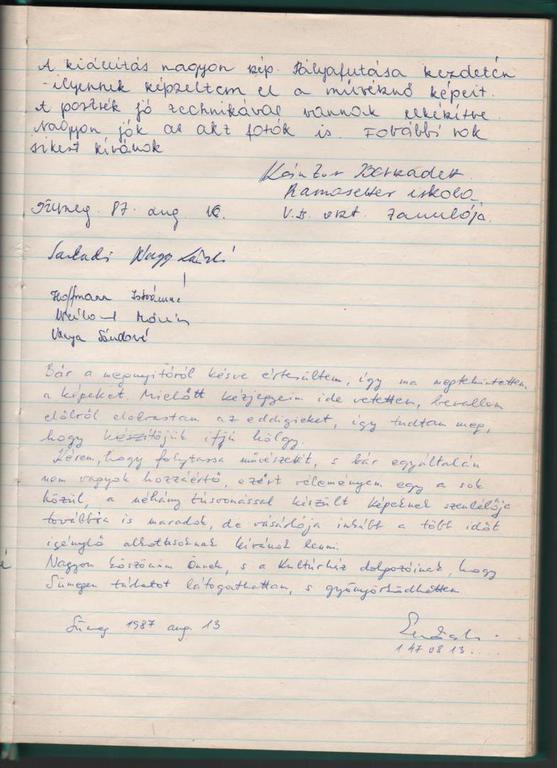 A kiállítás nagyon szép. Pályafutása kezdetén
ilyennek képzeltem el a művésznő képeit.
A portrék jó technikával vannak elkészítve.
Nagyon jók az akt fotók is. További sok
sikert kívánok
Kántor Bernadett
Ramasetter iskola
Sümeg. 87. aug 16. V. b. oszt. tanulója.
Nagy László
Hoffmann Istvánné
Varga Sándorné
Bár a megnyitóról késve értesültem, így ma megtekintettem
a képeket. Mielőtt kézjegyeim ide vetettem, bevallom
elölről elolvastam az eddigieket, így tudtam meg,
hogy készítőjük ifjú hölgy.
Kérem, hogy folytassa művészetét, s bár egyáltalán
nem vagyok hozzáértő, ezért véleményem egy a sok
közül, a néhány túsvonással készült képeknek szemlélője
továbbra is maradok, de vásárlója inkább a több időt
igénylő alkotásoknak kívánok lenni.
Nagyon köszönöm Önnek, s a Kultúrház dolgozóinak, hogy
Sümegen tárlatot látogathattam, s gyönyörködhettem
Sümeg 1987 aug. 13